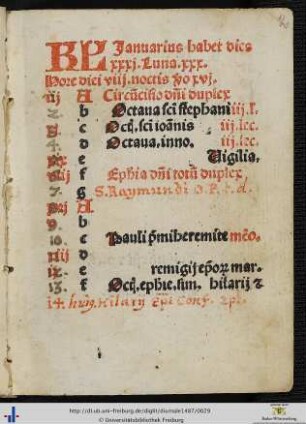 KL Januarius habet dies
xxxj. Luna. xxx.
More diei viij. noctis ṽo xvj.
iij A Circũcisio dñi duplex
2. b Octaua sci stephani iij. l.
3. c Octĩ. sci ioãnis iij. lec.
4. d Octaua. inno. iij. lec.
e Vigilia.
f Ephia dñi totũ duplex
7. g S. Raymundi O. P. t. d.
A
9. b
10. c Pauli p̃mi heremite mẽo.
xiij d
e remigij ep̃oꝝ mar.
13. f Octĩ. ephie. sim. hilarij ⁊
14. Hilarij Epi Conf.
http://dl.ub.uni-freiburg.de/diglit/diurnale1487/0029
© Universitätsbibliothek Freiburg
Baden-Württemberg